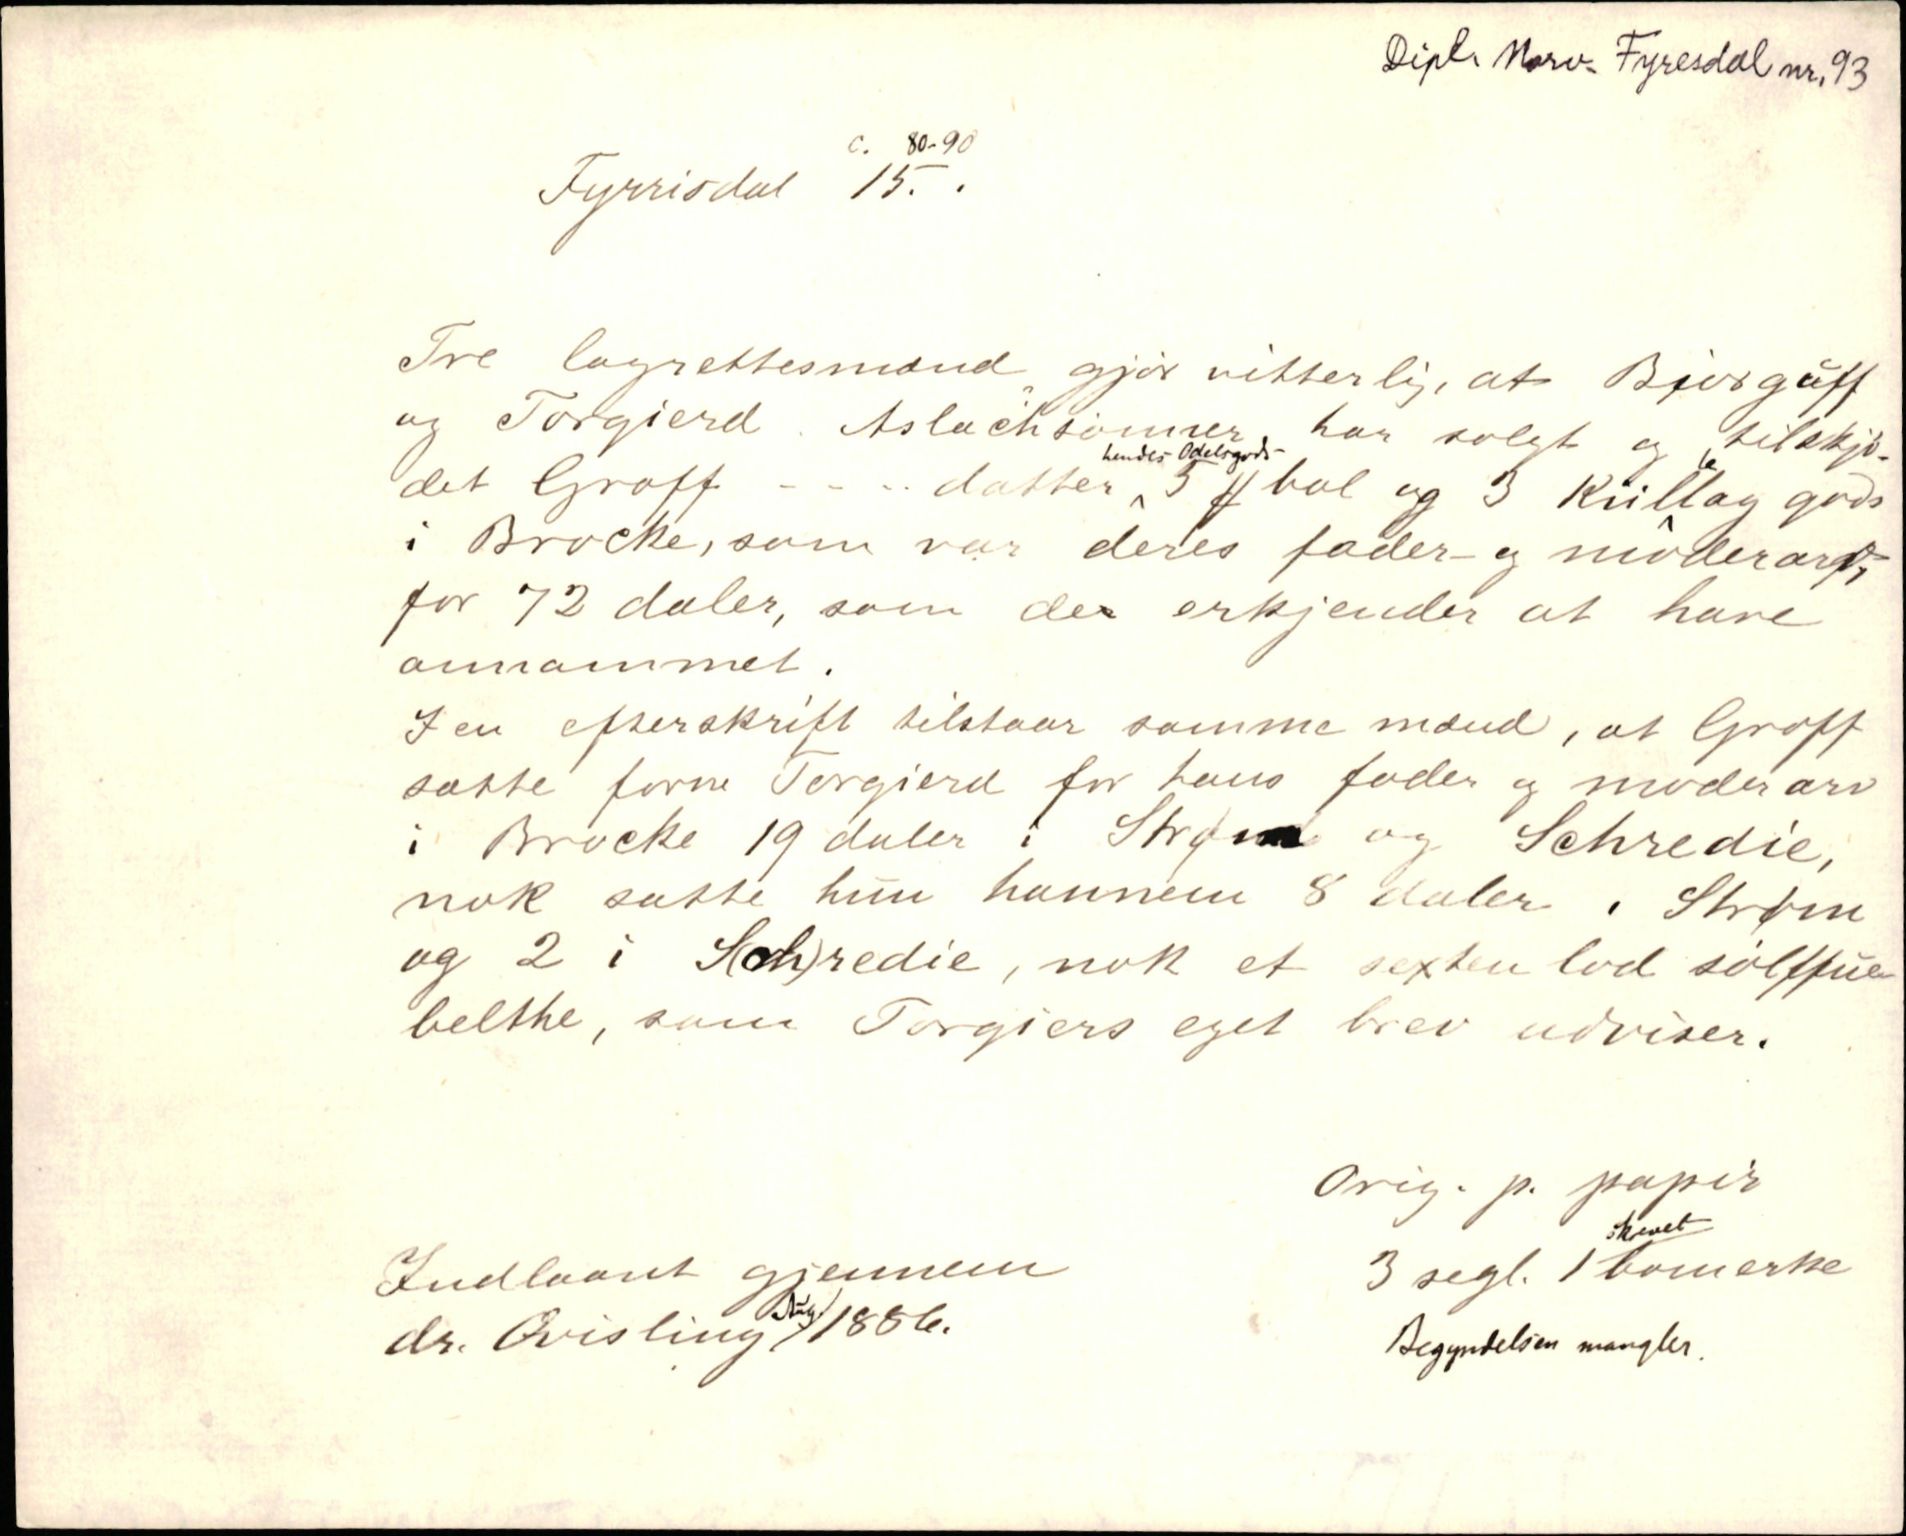 Dipl. Norv. Fyresdal nr. 93
c. 80-90
Fyrrisdal 15. .
Tre lagrettesmænd gjör vitterlig, at Biorguff
og Torgierd Aslachsönner har solgt og tilskjö-
hendes Odelsgods
det Groff - - - - datter 5 ff bol og 3 Kuillag gods
i Brocke, som var deres fader- og möderarf,
for 72 daler, som de erkjender at have
annammet.
I en efterskrift tilstaar samme mænd, at Groff
satte forne Torgierd for hans fader og moderarv
i Brocke 19 daler i Strøm og Schredie,
nok satte hun hannem 8 daler i Strøm
og 2 i S(ch)redie, nok et sexten lod sölffue
belthe, som Torgiers eget brev udviser.
Orig. p. papir
skrevet
3 segl. 1 bomerke
Begyndelsen mangler.
Indlaant gjennem
dr. Qvisling Aug. 1886.